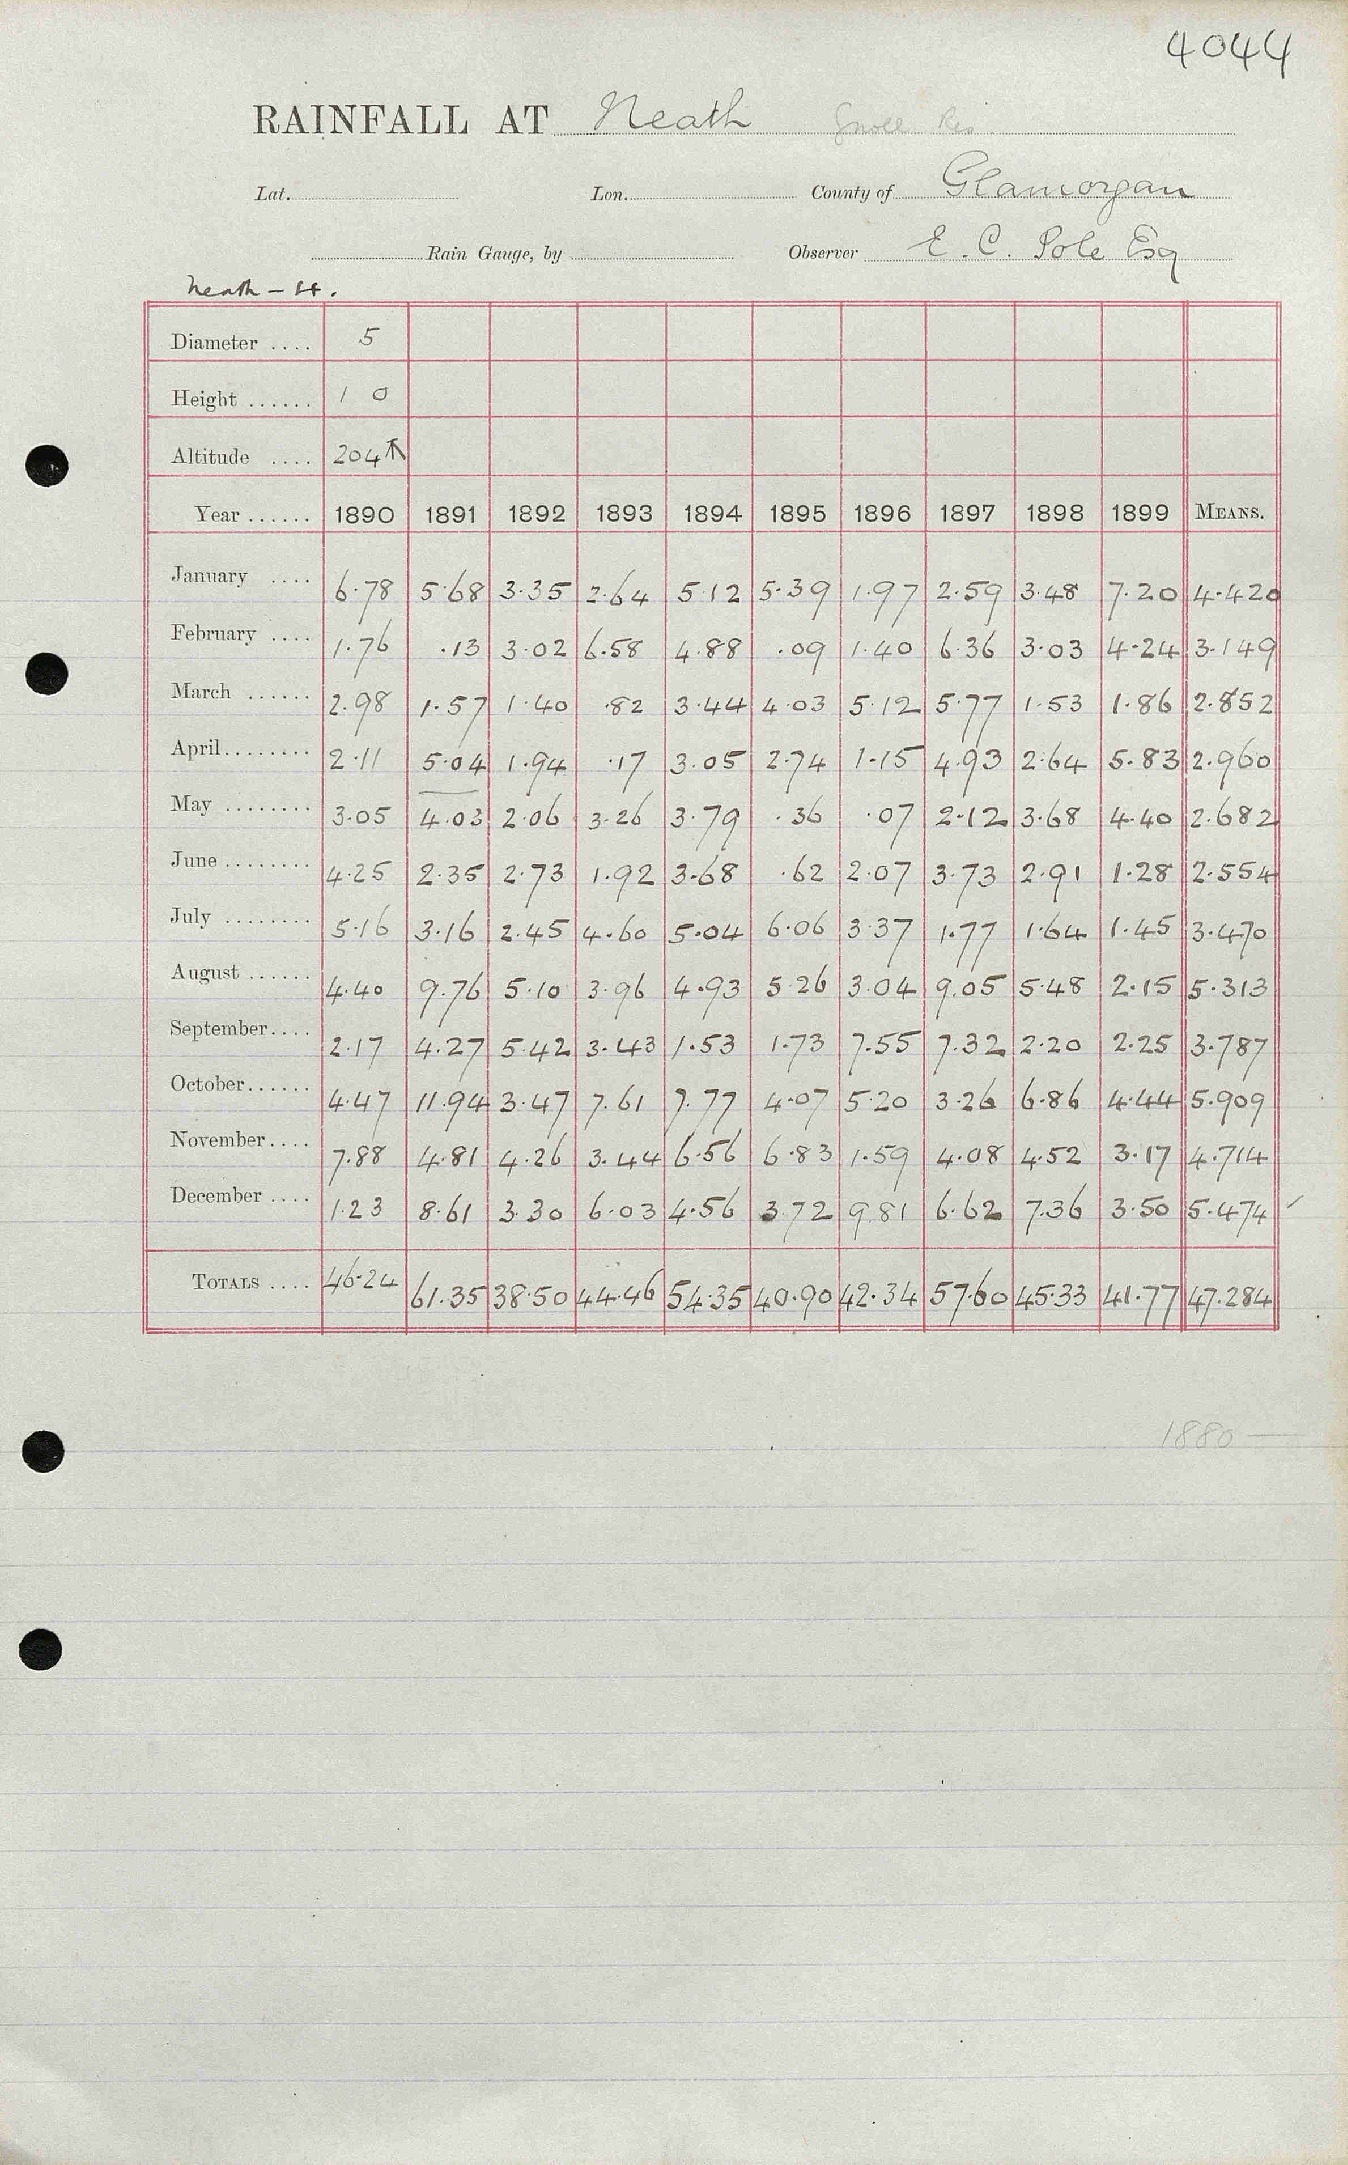 4044
RAINFALL AT Neath Gnoll Res.
Lat. Lon. County of Glamorgan
Rain Gauge, by Observer E. C. Pole Esq
Neath -
Diameter .... 5
Height ...... 1 0
Altitude .... 204
Year ...... 1890 1891 1892 1893 1894 1895 1896 1897 1898 1899 MEANS.
January .... 6.78 5.68 3.35 2.64 5.12 5.39 1.97 2.59 3.48 7.20 4.420
February .... 1.76 .13 3.02 6.58 4.88 .09 1.40 6.36 3.03 4.24 3.149
March ...... 2.98 1.57 1.40 .82 3.44 4.03 5.12 5.77 1.53 1.86 2.852
April ........ 2.11 5.04 1.94 .17 3.05 2.74 1.15 4.93 2.64 5.83 2.960
May ........ 3.05 4.03 2.06 3.26 3.79 .36 .07 2.12 3.68 4.40 2.682
June ........ 4.25 2.35 2.73 1.92 3.68 .62 2.07 3.73 2.91 1.28 2.554
July ........ 5.16 3.16 2.45 4.60 5.04 6.06 3.37 1.77 1.64 1.45 3.470
August ...... 4.40 9.76 5.10 3.96 4.93 5.26 3.04 9.05 5.48 2.15 5.313
September .... 2.17 4.27 5.42 3.43 1.53 1.73 7.55 7.32 2.20 2.25 3.787
October ...... 4.47 11.94 3.47 7.61 7.77 4.07 5.20 3.26 6.86 4.44 5.909
November .... 7.88 4.81 4.26 3.44 6.56 6.83 1.59 4.08 4.52 3.17 4.714
December .... 1.23 8.61 3.30 6.03 4.56 3.72 9.81 6.62 7.36 3.50 5.474
TOTALS .... 46.24 61.35 38.50 44.46 54.35 40.90 42.34 57.60 45.33 41.77 47.284
1880 —